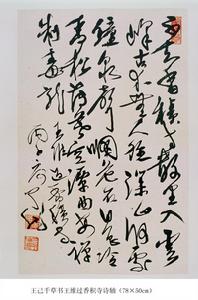 不知香積寺數里入雲
峰古木無人徑深山何處
鐘泉聲咽危石日色冷
青松薄暮空潭曲安禪
制毒龍
王己千草书王维过香积寺诗轴（78×50cm）